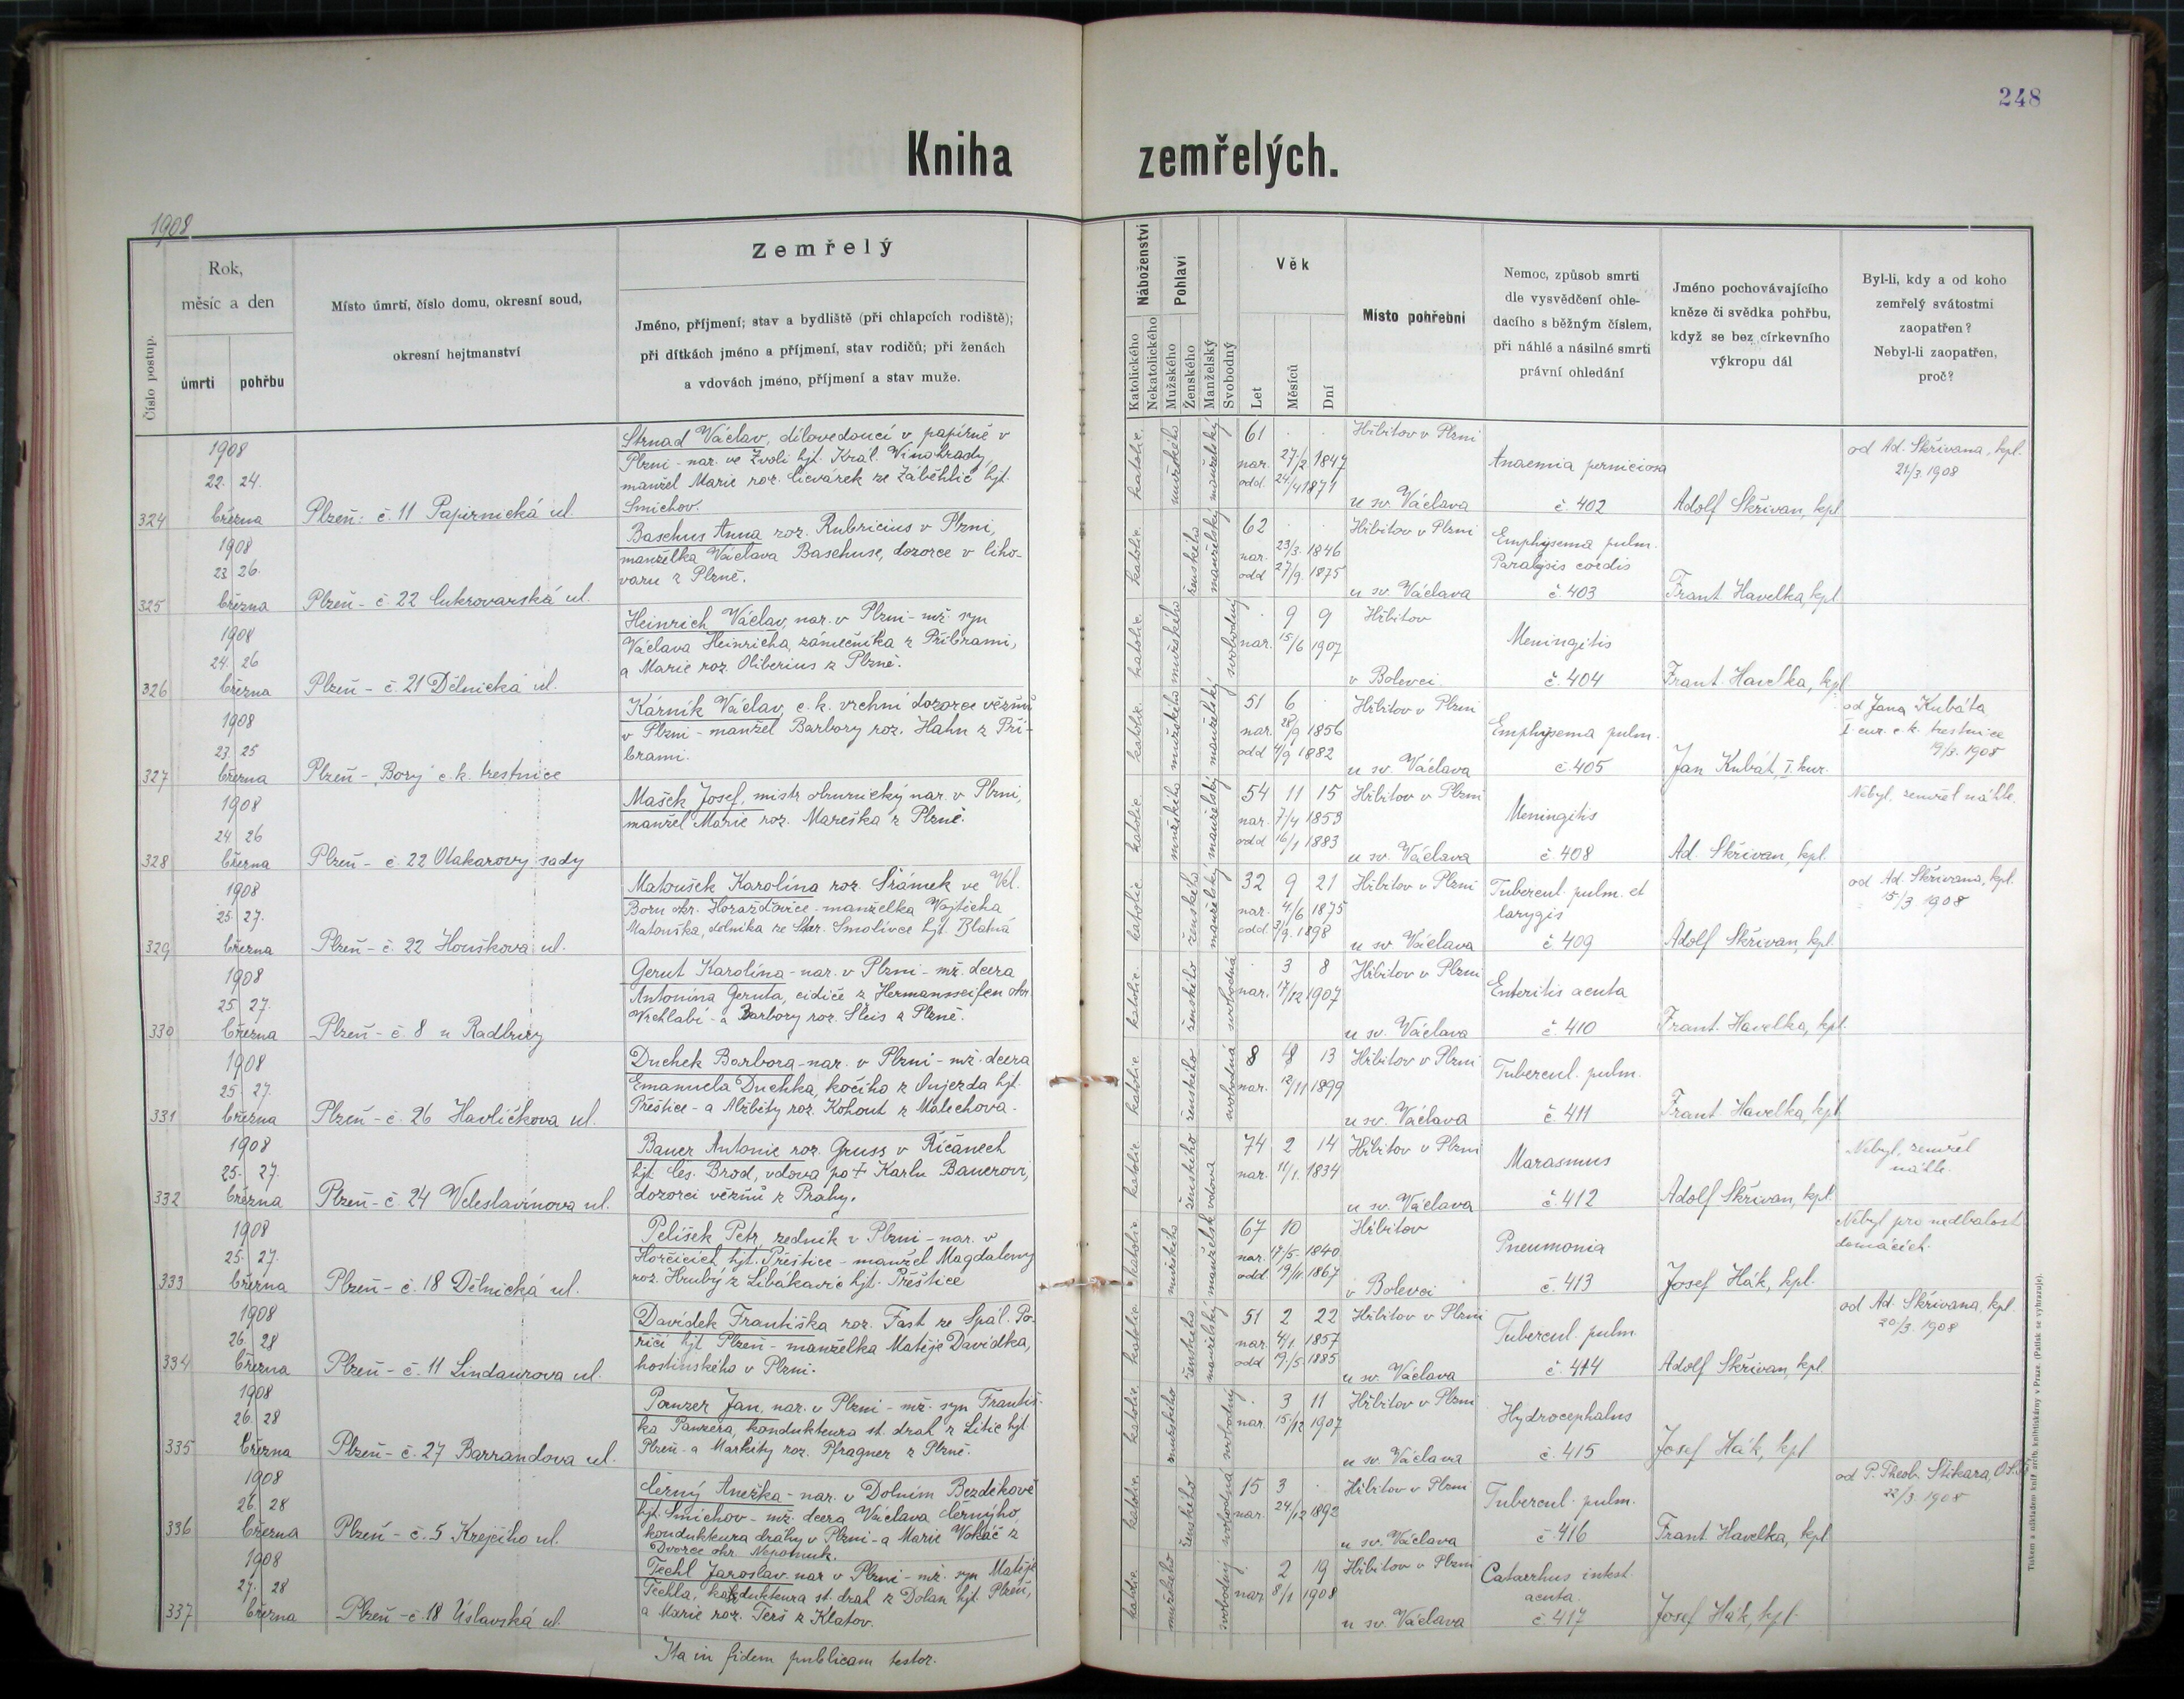 248
Kniha zemřelých.
1908
Číslo postup.
Rok,
měsíc a den
úmrtí
pohřbu
Místo úmrtí, číslo domu, okresní soud,
okresní hejtmanství
Zemřelý
Jméno, příjmení; stav a bydliště (při chlapcích rodiště);
při dítkách jméno a příjmení, stav rodičů; při ženách
a vdovách jméno, příjmení a stav muže.
Náboženství
Katolického
Nekatolického
Pohlaví
Mužského
Ženského
Manželský
Svobodný
Věk
Let
Měsíců
Dní
Místo pohřební
Nemoc, způsob smrti
dle vysvědčení ohle-
dacího s běžným číslem,
při náhlé a násilné smrti
právní ohledání
Jméno pochovávajícího
kněze či svědka pohřbu,
když se bez církevního
výkropu dál
Byl-li, kdy a od koho
zemřelý svátostmi
zaopatřen?
Nebyl-li zaopatřen,
proč?
324
1908
22. 24.
března
Plzeň: č. 11 Papírnická ul.
Strnad Václav, dílovedoucí v papírně v
Plzni - nar. ve Zvoli hjt. Král. Vinohrady,
manžel Marie roz. ze Záběhlic hjt.
Smíchov.
katolic. mužského manželský
61 . .
nar. 27/2 1847
odd. 24/4 1871
Hřbitov v Plzni
u sv. Václava
Anaemia perniciosa
č. 402
Adolf Skřivan, kpl
od Ad. Skřivana, kpl.
21/3. 1908
325
1908
23 26.
března
Plzeň - č. 22 Cukrovarská ul.
Basehus Anna roz. Rubricius v Plzni,
manželka Václava Basehuse, dozorce v liho-
varu z Plzně.
katolic. ženského manželský
62 . .
nar. 23/3. 1846
odd 27/9. 1875
Hřbitov v Plzni
u sv. Václava
Emphysema pulm.
Paralysis cordis
č. 403
Frant Havelka, kpl
326
1908
24. 26
března
Plzeň - č. 21 Dělnická ul.
Heinrich Václav, nar. v Plzni - mž. syn
Václava Heinricha, zámečníka z Příbrami,
a Marie roz. Oliberius z Plzně.
katolic. mužského svobodný
. 9 9
nar. 15/6 1907
Hřbitov
v Bolevci.
Meningitis
č. 404
Frant. Havelka, kpl
327
1908
23. 25
března
Plzeň - „Bory" c. k. trestnice
Kárník Václav, c. k. vrchní dozorce vězňů
v Plzni - manžel Barbory roz. Hahn z Pří-
brami.
katolic. mužského manželský
51 6
nar. 28/9 1856
odd 4/9 1882
Hřbitov v Plzni
u sv. Václava
Emphysema pulm.
č. 405
Jan Kubát, I. kur.
od Jana Kubáta
I. cur. c. k. trestnice
19/3. 1908
328
1908
24. 26
března
Plzeň - č. 22 Otakarovy sady
Mašek Josef, mistr obuvnický nar. v Plzni,
manžel Marie roz. Mareška z Plzně.
katolic. mužského manželský
54 11 15
nar. 7/4 1853
odd 16/1 1883
Hřbitov v Plzni
u sv. Václava
Meningitis
č. 408
Ad. Skřivan, kpl.
Nebyl, zemřel náhle.
329
1908
25. 27.
března
Plzeň - č. 22 Houškova ul.
Matoušek Karolína roz. Šrámek ve Vel.
Boru okr. Horažďovice - manželka Vojtěcha
Matouška, dělníka ze Star. Smolivce hjt. Blatná
katolic. ženského manželský
32 9 21
nar. 4/6 1875
odd. 3/9. 1898
Hřbitov v Plzni
u sv. Václava
Tubercul. pulm. et
larygis
č 409
Adolf Skřivan, kpl.
od Ad. Skřivana, kpl.
15/3 1908
330
1908
25. 27.
března
Plzeň - č 8 u Radbuzy
Gerut Karolína - nar. v Plzni - mž. dcera
Antonína Geruta, cidiče z Hermannseifen okr.
Vrchlabí - a Barbory roz. Šleis z Plzně.
katolic. ženského svobodná
. 3 8
nar. 17/12 1907
Hřbitov v Plzni
u sv. Václava
Enteritis acuta
č. 410
Frant. Havelka, kpl.
331
1908
25. 27.
března
Plzeň - č. 26 Havlíčkova ul.
Duchek Barbora - nar. v Plzni - mž. dcera
Emanuela Duchka, kočího z Oujezda hjt.
Přeštice - a Alžběty roz. Kohout z Malechova.
katolic. ženského svobodná
8 4 13
nar. 12/11 1899
Hřbitov v Plzni
u sv. Václava
Tubercul. pulm.
č. 411
Frant. Havelka, kpl
332
1908
25. 27.
března
Plzeň - č. 24 Veleslavínova ul.
Bauer Antonie roz. Gruss v Říčanech
hjt. Čes. Brod, vdova po † Karlu Bauerovi,
dozorci vězňů z Prahy.
katolic ženského vdova
74 2 14
nar. 11/1. 1834
Hřbitov v Plzni
u sv. Václava
Marasmus
č. 412
Adolf Skřivan, kpl.
Nebyl, zemřel
náhle.
333
1908
25. 27.
března
Plzeň - č. 18 Dělnická ul.
Pelíšek Petr, zedník v Plzni - nar. v
Horčicích, hjt. Přeštice - manžel Magdaleny
roz. Hrubý z Libákovic hjt. Přeštice
katolic mužského manželský
67 10
nar. 17/5. 1840
odd 19/11 1867
Hřbitov
v Bolevci
Pneumonia
č. 413
Josef Hák, kpl.
Nebyl pro nedbalost
domácích.
334
1908
26. 28
března
Plzeň - č. 11 Lindaurova ul.
Davídek Františka roz. Fast ze Spál. Po-
říčí hjt Plzeň - manželka Matěje Davídka,
hostinského v Plzni.
katolic ženského manželský
51 2 22
nar. 4/1. 1857
odd 19/5 1885
Hřbitov v Plzni
u sv. Václava
Tubercul. pulm.
č. 414
Adolf Skřivan, kpl.
od Ad. Skřivana, kpl.
20/3. 1908
335
1908
26. 28
března
Plzeň - č. 27 Barrandova ul.
Panzer Jan, nar. v Plzni - mž. syn Františ-
ka Panzera, kondukteura st. drah z Litic hjt.
Plzeň - a Markéty roz. Pfragner z Plzně.
katolic. mužského svobodný
. 3 11
nar. 15/12 1907
Hřbitov v Plzni
u sv. Václava
Hydrocephalus
č. 415
Josef Hák, kpl
336
1908
26. 28
března
Plzeň - č. 5 Krejčího ul.
Černý Anežka - nar. v Dolním Bezděkově
hjt. Smíchov - mž. dcera Václava Černýho,
kondukteura dráhy v Plzni - a Marie Vokáč z
Dvorce okr. Nepomuk.
katolic. ženského svobodná
15 3 .
nar. 24/12 1892
Hřbitov v Plzni
u sv. Václava
Tubercul. pulm.
č 416
Frant Havelka, kpl
od P. Theob. Štikara,
22/3. 1908
337
1908
27. 28
března
Plzeň - č 18 Úslavská ul.
Techl Jaroslav nar v Plzni - mž. syn Matěje
Techla, kondukteura st. drah z Dolan hjt. Plzeň,
a Marie roz. Terš z Klatov.
katolic. mužského svobodný
. 2 19
nar 8/1 1908
Hřbitov v Plzni
u sv. Václava
Catarrhus intest.
acuta.
č 417
Josef Hák, kpl.
Ita in fidem publicam testor.
Tiskem a nákladem kníž. arcib. knihtiskárny v Praze. (Patisk se vyhrazuje).